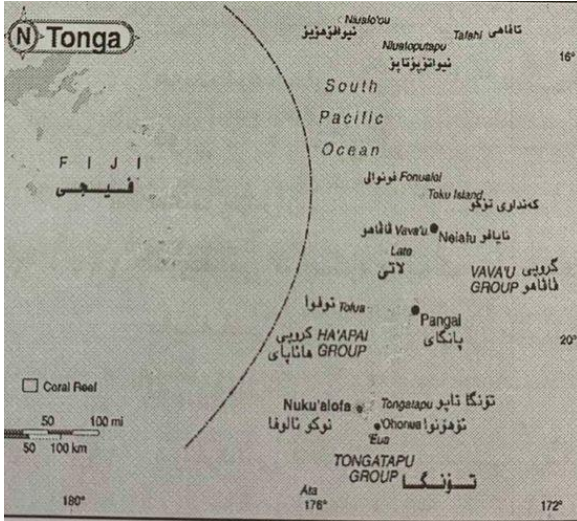 N Tonga
Niuafo'ou
نیوافۆهۆیۆ
Tafahi تافاهی
Niuatoputapu
نیواتۆپۆتاپۆ
16°
South
Pacific
Ocean
FIJI
فیجی
فونوالی Fonualei
Toku Island
کەنداری تۆکۆ
ڤاڤاهو Vava'u
Neiafu نایافو
Late
لاتی
گروپی VAVA'U
GROUP ڤاڤاهو
توفوا Tofua
Pangai
پانگای
گروپی HA'APAI
هائاپای GROUP
20°
Coral Reef
50 100 mi
50 100 km
Nuku'alofa
نوکو ئالوفا
Tongatapu تۆنگا تاپو
'Ohonua ئۆهۆنوا
'Eua
TONGATAPU
GROUP تـۆنـگـا
180°
Ata
176°
172°